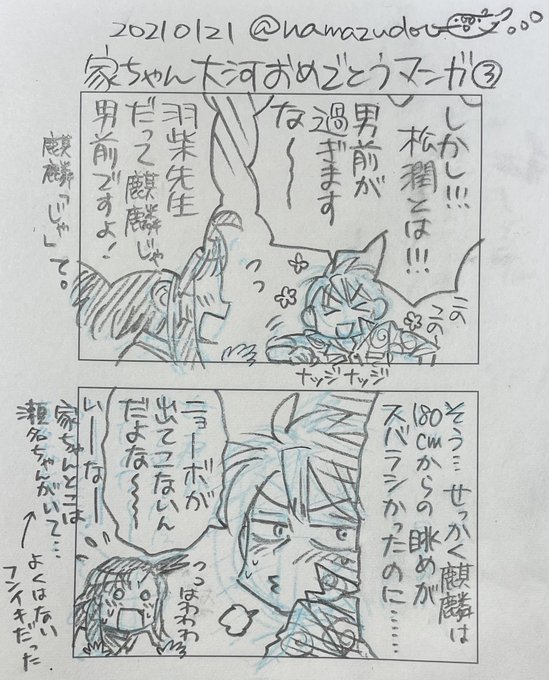 20210121 @namazudou
家ちゃん大河おめでとうマンガ③
しかし!!!
松潤とは!!!
男前が
過ぎます
な〜〜
このこの
ナッジナッジ
羽柴先生
だって麒麟じゃ
男前ですよ!
麒麟「じゃ」て。
そう…せっかく麒麟は
180cmからの眺めが
スバラシかったのに……
ニョーボが
出てこないん
だよな〜〜
いーなー
家ちゃんとこは
瀬名ちゃんがいて…
っはわわわ
よくはない
フンイキだった